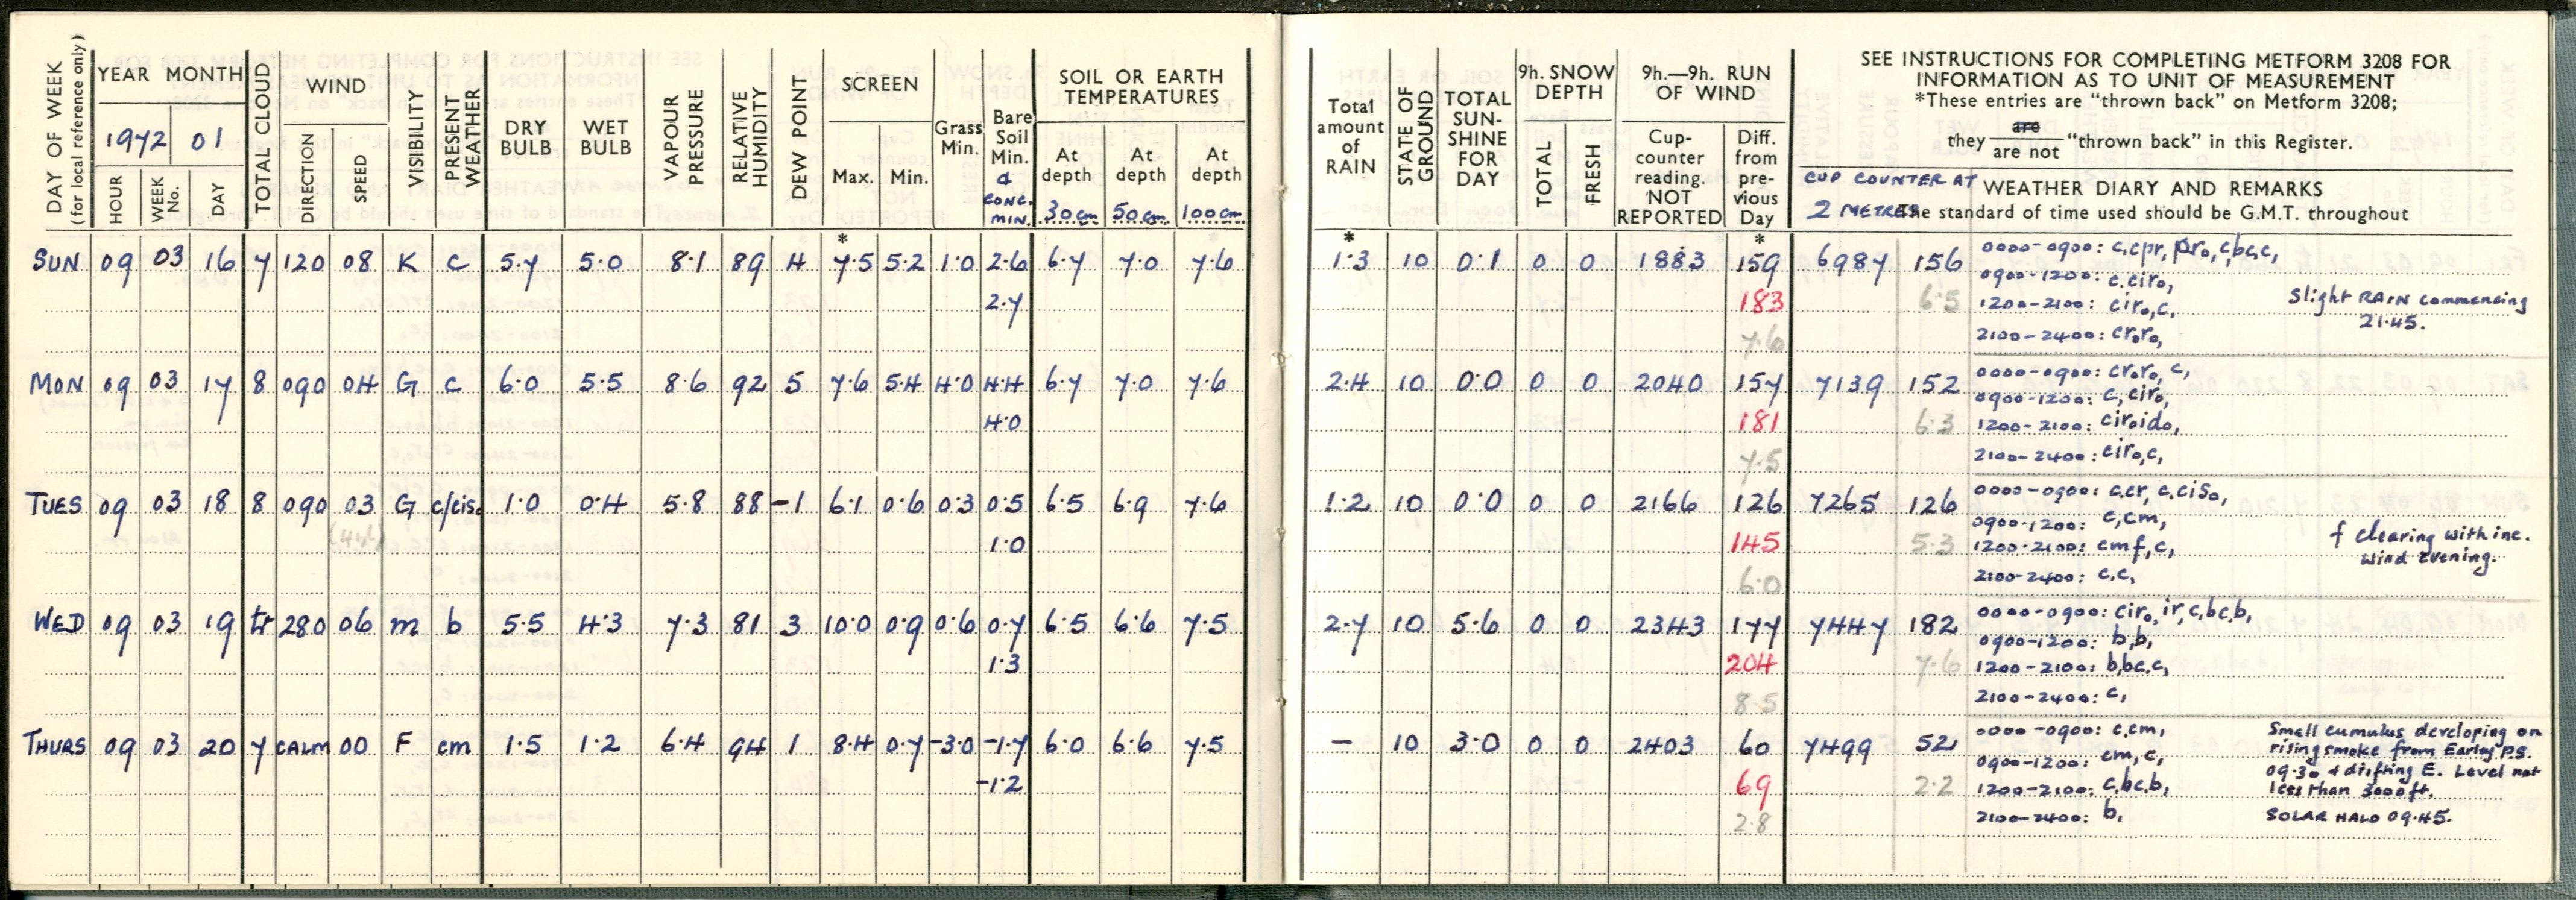 DAY OF WEEK (for local reference only)
YEAR MONTH
1972 01
HOUR WEEK No. DAY
TOTAL CLOUD
WIND
DIRECTION SPEED
VISIBILITY
PRESENT WEATHER
DRY BULB
WET BULB
VAPOUR PRESSURE
RELATIVE HUMIDITY
DEW POINT
SCREEN
Max. Min.
Grass Min.
Bare Soil Min. & CONC. MIN.
SOIL OR EARTH TEMPERATURES
At depth 30cm
At depth 50cm
At depth 100cm
Total amount of RAIN
STATE OF GROUND
TOTAL SUN-SHINE FOR DAY
9h. SNOW DEPTH
TOTAL FRESH
9h.—9h. RUN OF WIND
Cup-counter reading. NOT REPORTED
Diff. from pre-vious Day
SEE INSTRUCTIONS FOR COMPLETING METFORM 3208 FOR
INFORMATION AS TO UNIT OF MEASUREMENT
*These entries are "thrown back" on Metform 3208;
they are / are not "thrown back" in this Register.
CUP COUNTER AT 2 METRES
WEATHER DIARY AND REMARKS
The standard of time used should be G.M.T. throughout
* * *
SUN 09 03 16 7 120 08 K c 5.7 5.0 8.1 89 4 7.5 5.2 1.0 2.6 6.7 7.0 7.6 1.3 10 0.1 0 0 1883 159 6987 156 0000-0900: c,cpr, pro, c,bc,c,
0900-1200: c,ciro,
2.7 183 6.5 1200-2100: ciro,c, Slight RAIN commencing
21.45.
7.6 2100-2400: croro,
MON 09 03 17 8 090 04 G c 6.0 5.5 8.6 92 5 7.6 5.4 4.0 4.4 6.7 7.0 7.6 2.4 10 0.0 0 0 2040 157 7139 152 0000-0900: croro, c,
0900-1200: c, ciro,
4.0 181 6.3 1200-2100: ciroido,
7.5 2100-2400: ciro,c,
TUES 09 03 18 8 090 03 G c/ciso 1.0 0.4 5.8 88 -1 6.1 0.6 0.3 0.5 6.5 6.9 7.6 1.2 10 0.0 0 0 2166 126 7265 126 0000-0900: c,cr, c,ciso,
0900-1200: c,cm,
1.0 145 5.3 1200-2100: cmf,c, f clearing with inc.
wind evening.
6.0 2100-2400: c,c,
WED 09 03 19 tr 280 06 m b 5.5 4.3 7.3 81 3 10.0 0.9 0.6 0.7 6.5 6.6 7.5 2.7 10 5.6 0 0 2343 177 7447 182 0000-0900: ciro, ir,c,bc,b,
0900-1200: b,b,
1.3 204 7.6 1200-2100: b,bc,c,
8.5 2100-2400: c,
THURS 09 03 20 7 CALM 00 F cm 1.5 1.2 6.4 94 1 8.4 0.7 -3.0 -1.7 6.0 6.6 7.5 — 10 3.0 0 0 2403 60 7499 52 0000-0900: c,cm, Small cumulus developing on
0900-1200: cm,c, rising smoke from Earley P.S.
09.30 & drifting E. Level not
-1.2 69 2.2 1200-2100: c,bc,b, less than 3000ft.
2.8 2100-2400: b, SOLAR HALO 09.45.